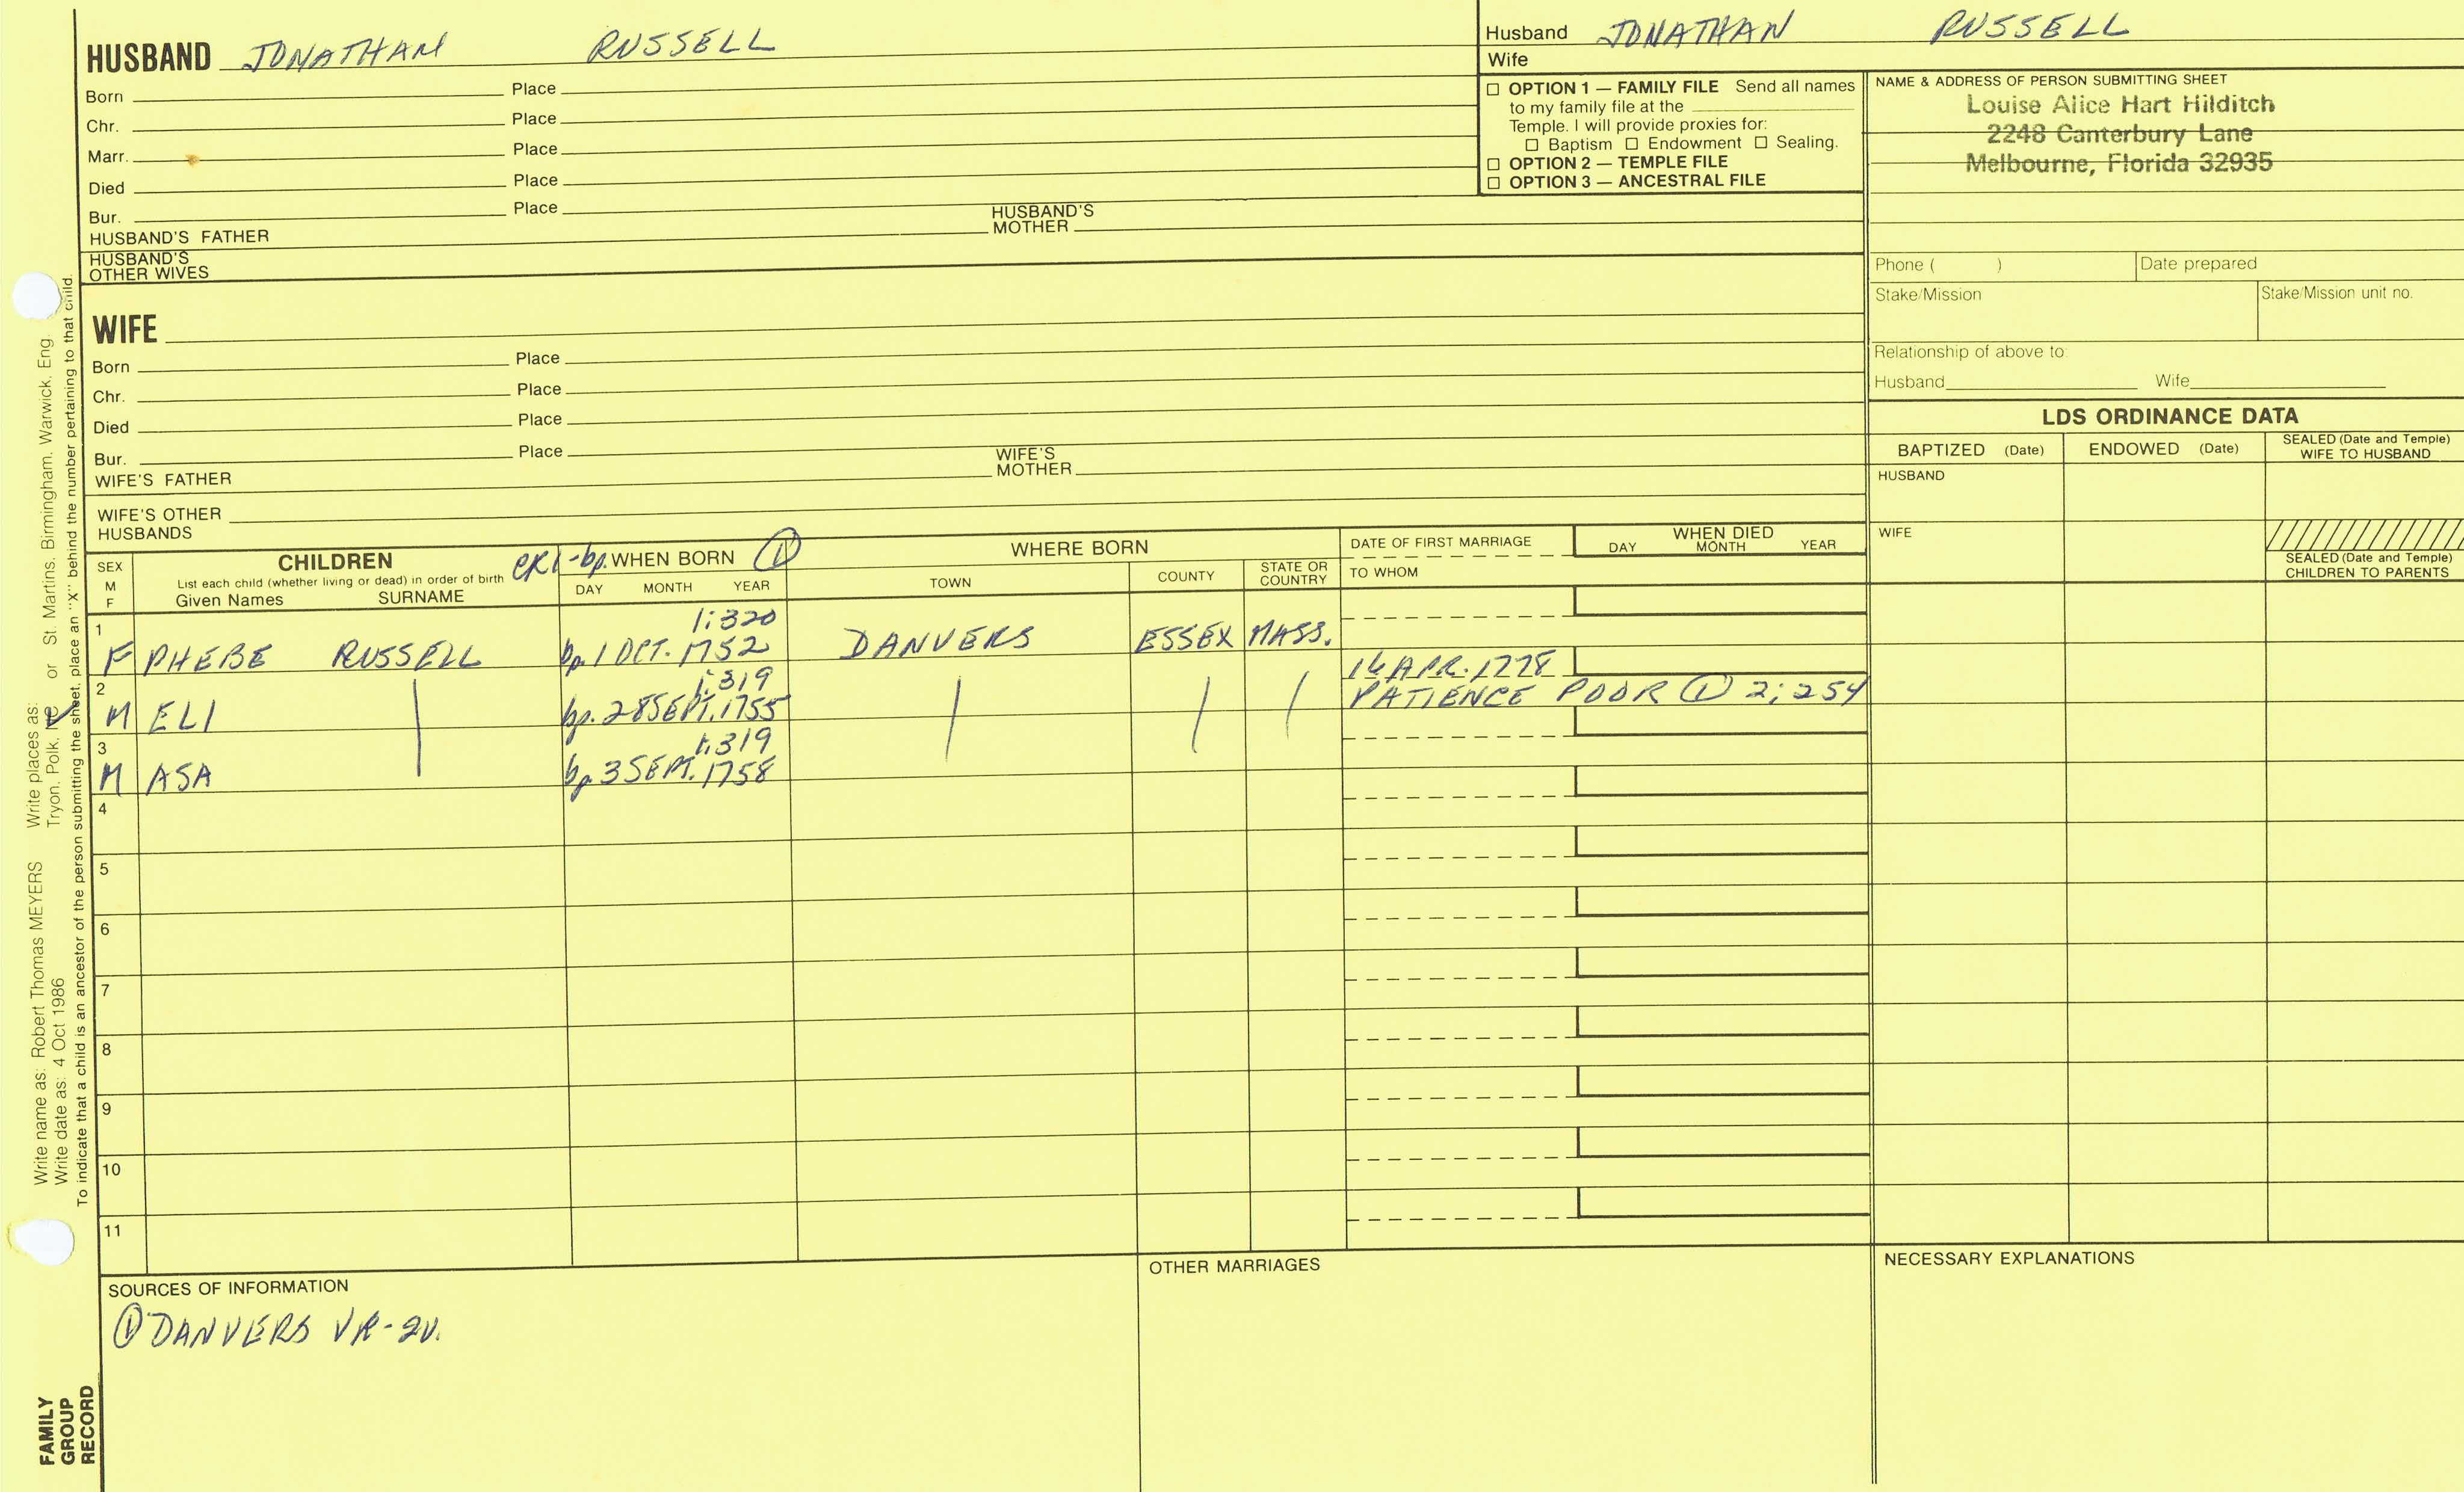 HUSBAND JONATHAN RUSSELL
Born Place
Chr. Place
Marr. Place
Died Place
Bur. Place
HUSBAND'S FATHER HUSBAND'S MOTHER
HUSBAND'S OTHER WIVES
WIFE
Born Place
Chr. Place
Died Place
Bur. Place
WIFE'S FATHER WIFE'S MOTHER
WIFE'S OTHER HUSBANDS
Husband JONATHAN RUSSELL
Wife
☐ OPTION 1 — FAMILY FILE Send all names
to my family file at the
Temple. I will provide proxies for:
☐ Baptism ☐ Endowment ☐ Sealing.
☐ OPTION 2 — TEMPLE FILE
☐ OPTION 3 — ANCESTRAL FILE
NAME & ADDRESS OF PERSON SUBMITTING SHEET
Louise Alice Hart Hilditch
2248 Canterbury Lane
Melbourne, Florida 32935
Phone ( ) Date prepared
Stake/Mission Stake/Mission unit no.
Relationship of above to:
Husband Wife
LDS ORDINANCE DATA
BAPTIZED (Date) ENDOWED (Date) SEALED (Date and Temple) WIFE TO HUSBAND
HUSBAND
WIFE
SEALED (Date and Temple) CHILDREN TO PARENTS
SEX M F
CHILDREN
List each child (whether living or dead) in order of birth
Given Names SURNAME
CR1-bp. WHEN BORN ①
DAY MONTH YEAR
WHERE BORN
TOWN COUNTY STATE OR COUNTRY
DATE OF FIRST MARRIAGE
TO WHOM
WHEN DIED
DAY MONTH YEAR
1 1:320
F PHEBE RUSSELL bp. 1 OCT. 1752 DANVERS ESSEX MASS.
2 1:319 16 APR. 1778
M ELI bp. 28 SEPT. 1755 PATIENCE POOR ① 2:254
3 1:319
M ASA bp. 3 SEPT. 1758
4
5
6
7
8
9
10
11
SOURCES OF INFORMATION
① DANVERS VR-2V.
OTHER MARRIAGES
NECESSARY EXPLANATIONS
Write name as: Robert Thomas MEYERS Write places as:
Write date as: 4 Oct 1986 Tryon, Polk, or St. Martins, Birmingham, Warwick, Eng.
To indicate that a child is an ancestor of the person submitting the sheet, place an "X" behind the number pertaining to that child.
FAMILY
GROUP
RECORD